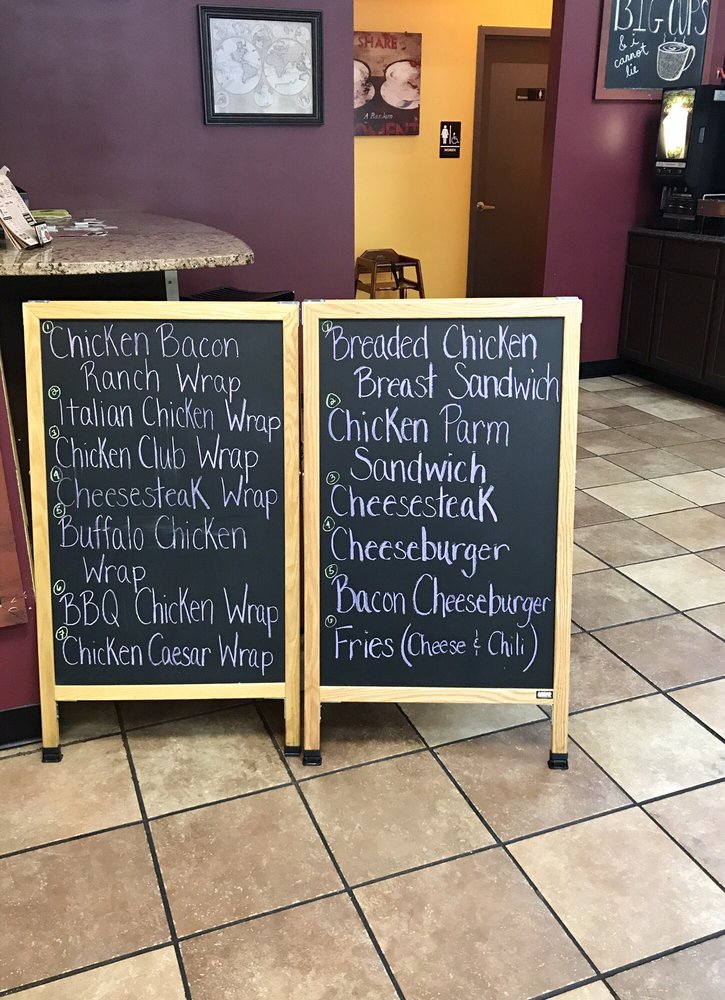 BIG CUPS
& i
cannot
lie
SHARE
A Random
MOMENT
WOMEN
1 Chicken Bacon
Ranch Wrap
2 Italian Chicken Wrap
3 Chicken Club Wrap
4 Cheesesteak Wrap
5 Buffalo Chicken
Wrap
6 BBQ Chicken Wrap
7 Chicken Caesar Wrap
1 Breaded Chicken
Breast Sandwich
2 Chicken Parm
Sandwich
3 Cheesesteak
4 Cheeseburger
5 Bacon Cheeseburger
Fries (Cheese & Chili)